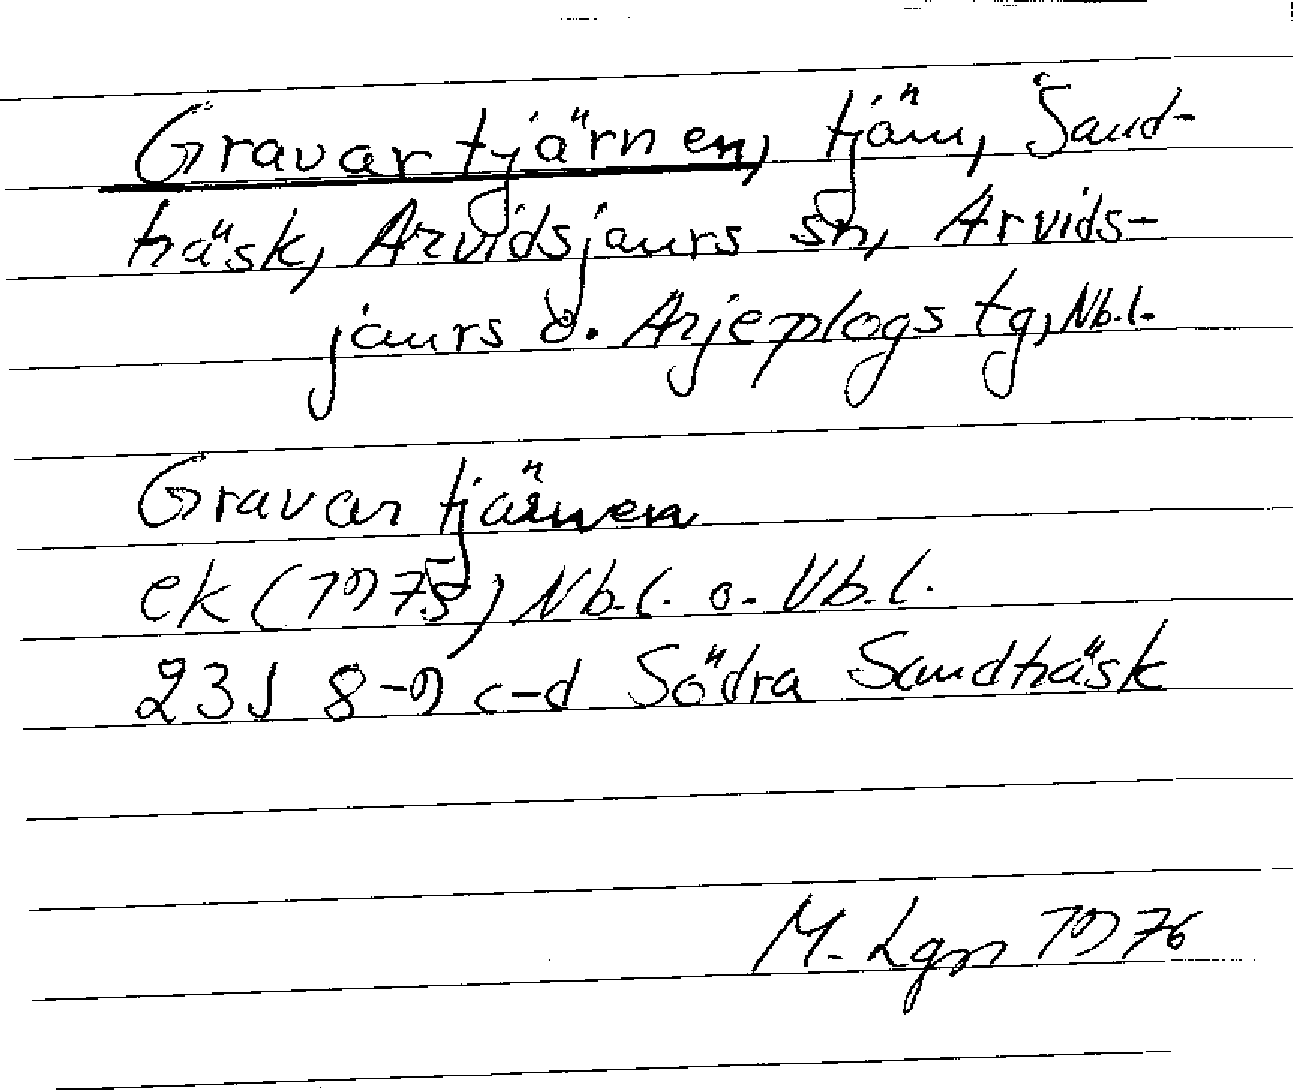 Gravartjärnen, tjärn, Sand-
träsk, Arvidsjaurs sn, Arvids-
jaurs o. Arjeplogs tg, Nb.l.
Gravartjärnen
ek (1975) Nb.l. o. Vb.l.
23J 8-9 c-d Södra Sandträsk
M. Lgn 1976